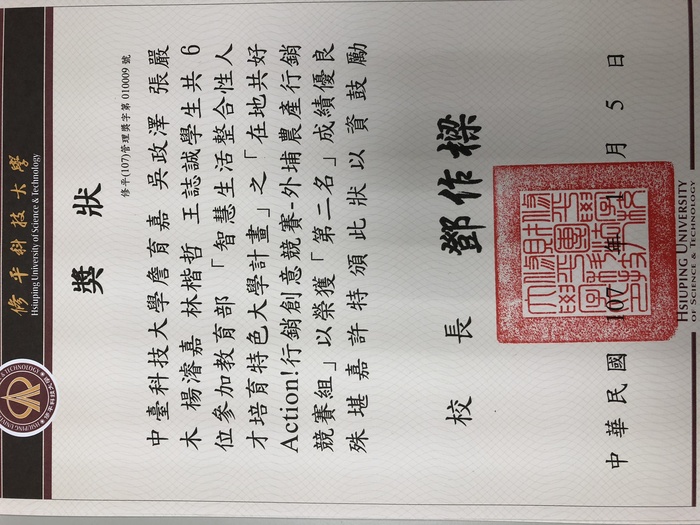 修平科技大學
Hsiuping University of Science & Technology
獎狀
修平(107)管理獎字第 010009 號
中臺科技大學詹育嘉 吳政澤 張嚴
木 楊濬嘉 林楷哲 王誌誠學生共 6
位參加教育部「智慧生活整合性人
才培育特色大學計畫」之「在地共好
Action!行銷創意競賽-外埔農產行銷
競賽組」以榮獲「第二名」成績優良
殊堪嘉許特頒此狀以資鼓勵
校長 鄧作樑
中華民國 107 年 1 月 5 日
HSIUPING UNIVERSITY
OF SCIENCE & TECHNOLOGY